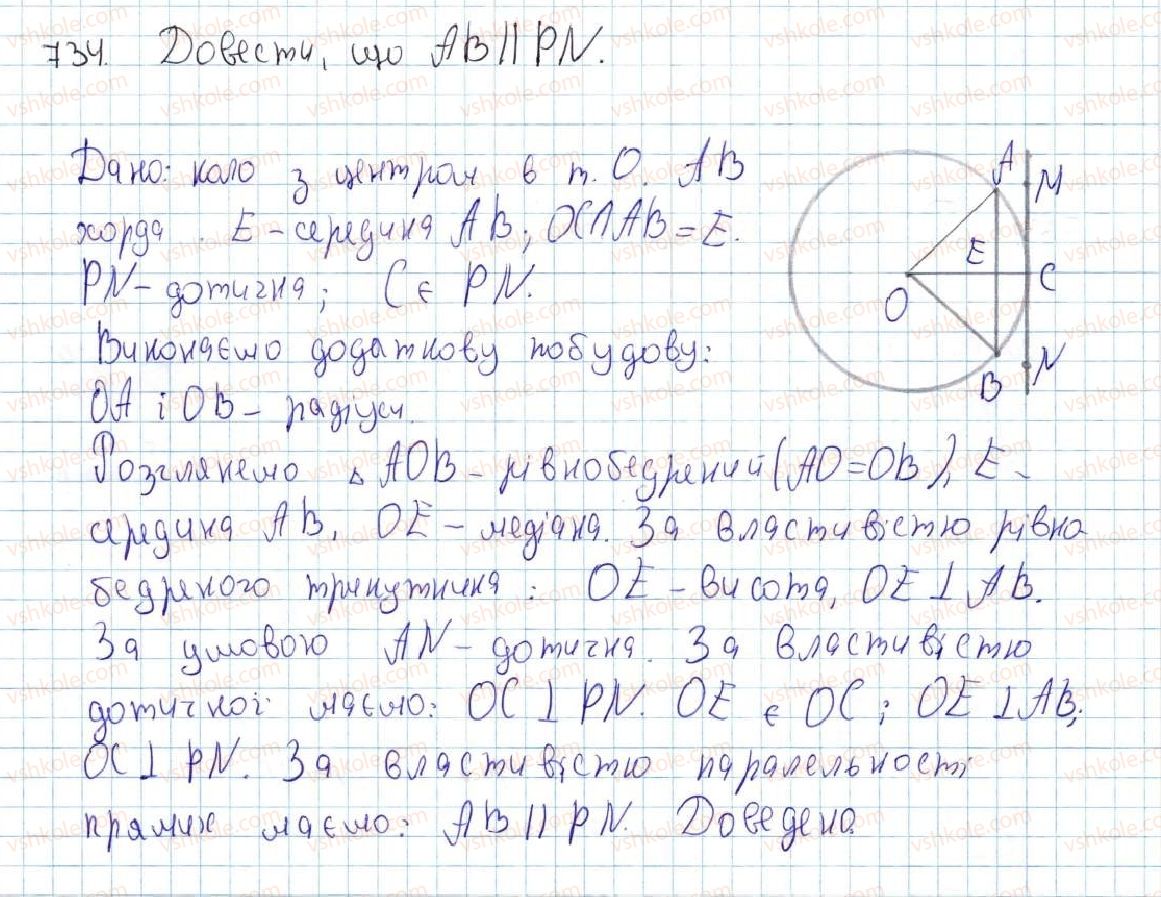 734. Довести, що AB || PN.
Дано: коло з центром в т. O. AB
хорда. E - середина AB; OC ∩ AB = E.
PN - дотична; C є PN.
Виконаємо додаткову побудову:
OA і OB - радіуси.
Розглянемо △ AOB - рівнобедрений (AO = OB), E -
середина AB, OE - медіана. За властивістю рівно
бедреного трикутника: OE - висота, OE ⊥ AB.
За умовою AN - дотична. За властивістю
дотичної маємо: OC ⊥ PN. OE є OC; OE ⊥ AB;
OC ⊥ PN. За властивістю паралельності
прямих маємо: AB || PN. Доведено.
A
M
E
C
O
N
B
vshkole.com